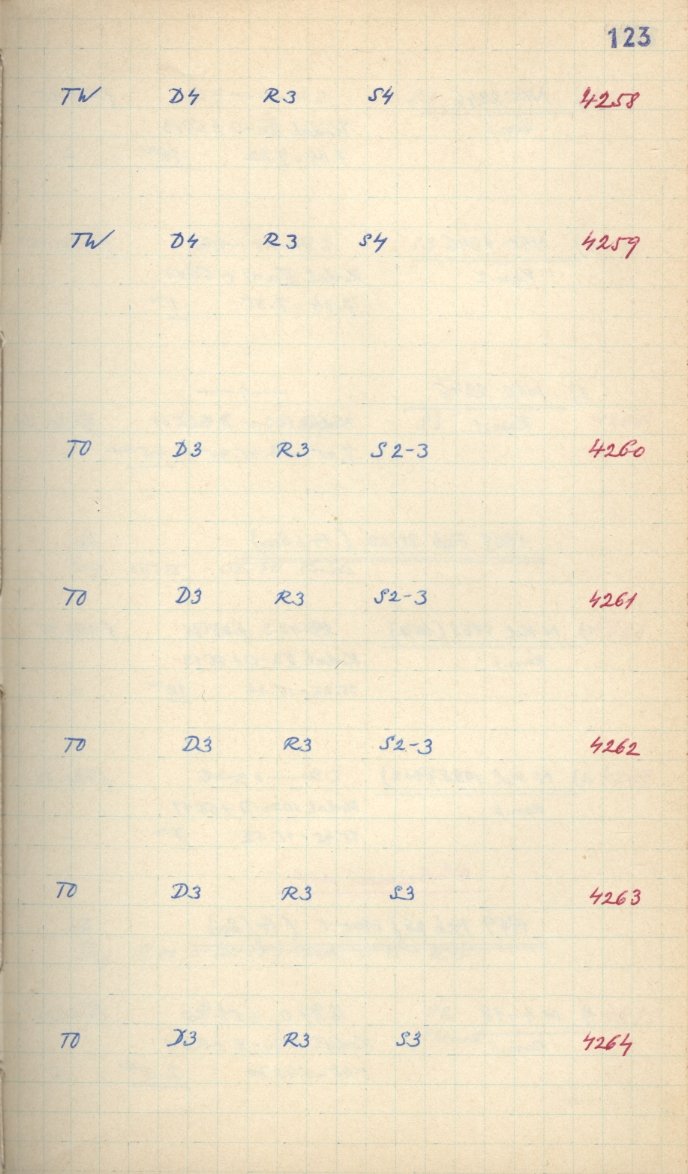 123
TW D4 R3 S4 4258
TW D4 R3 S4 4259
TO D3 R3 S2-3 4260
TO D3 R3 S2-3 4261
TO D3 R3 S2-3 4262
TO D3 R3 S3 4263
TO D3 R3 S3 4264